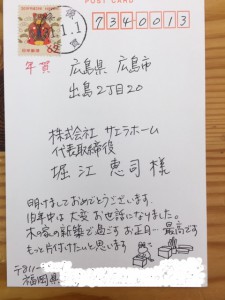 POST CARD
7340013
年賀
1.1
広島県 広島市
出島2丁目20
株式会社 サエラホーム
代表取締役
堀江 恵司 様
明けましておめでとうございます.
旧年中は大変お世話になりました。
木の家の新築で過ごすお正月…最高です
もっと片付けたいと思います
〒811-
福岡県